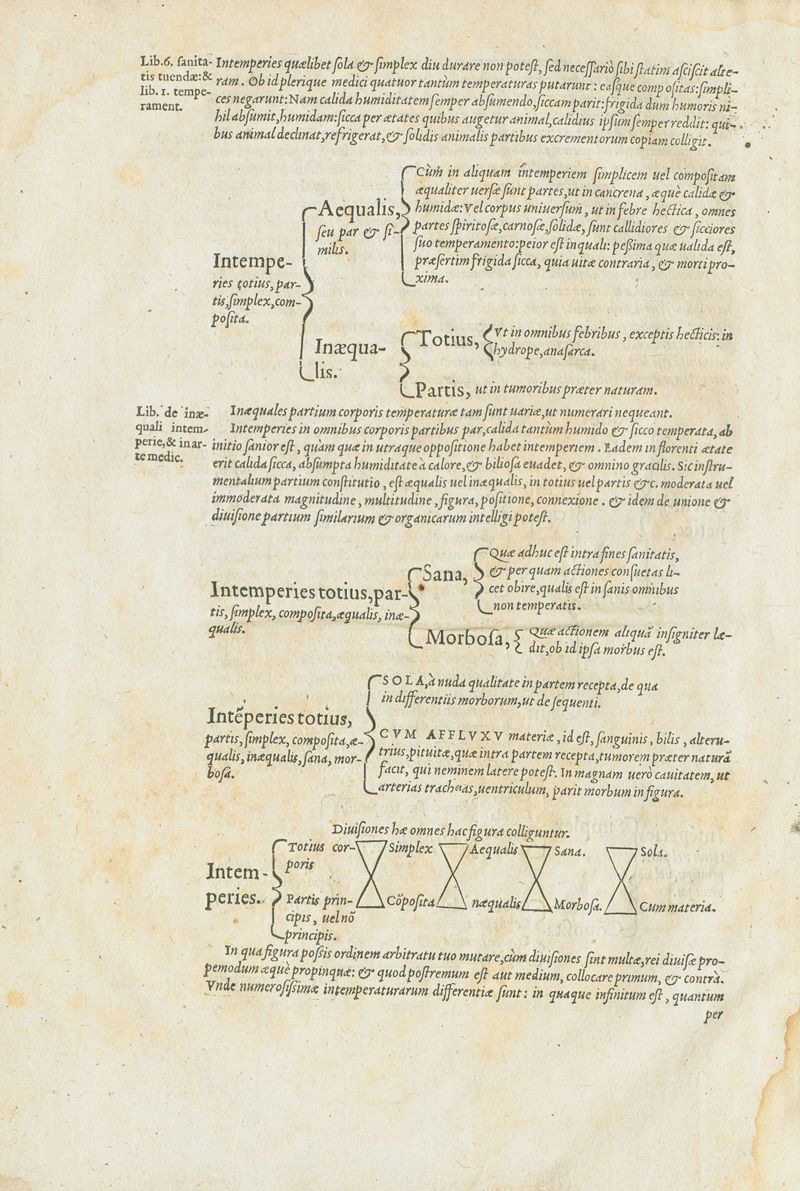 Lib. 6. ſanita-
tis tuendæ: &
lib. 1. tempe-
rament.
Intemperies quælibet ſola & ſimplex diu durare non poteſt, ſed neceſſariò ſibi ſtatim aſciſcit alte-
ram. Ob id plerique medici quatuor tantùm temperaturas putarunt: eaſque compoſitas: ſimpli-
ces negarunt: Nam calida humiditatem ſemper abſumendo, ſiccam parit: frigida dum humoris ni-
hil abſumit, humidam: ſicca per ætates quibus augetur animal, calidius ipſum ſemper reddit: qui-
bus animal declinat, refrigerat, & ſolidis animalis partibus excrementorum copiam colligit.
Intempe-
ries totius, par-
tis, ſimplex, com-
poſita.
Aequalis,
ſeu par & ſi-
milis.
Cùm in aliquam intemperiem ſimplicem uel compoſitam
æqualiter uerſæ ſunt partes, ut in cancrena, æquè calidæ &
humidæ: Vel corpus uniuerſum, ut in febre hectica, omnes
partes ſpiritoſæ, carnoſæ, ſolidæ, ſunt callidiores & ſicciores
ſuo temperamento: peior eſt inquali: peßima quæ ualida eſt,
præſertim frigida ſicca, quia uitæ contraria, & morti pro-
xima.
Inæqua-
lis.
Totius,
Vt in omnibus febribus, exceptis hecticis: in
hydrope, anaſarca.
Partis, ut in tumoribus præter naturam.
Lib. de inæ-
quali intem-
perie, & in ar-
te medic.
Inæquales partium corporis temperaturæ tam ſunt uariæ, ut numerari nequeant.
Intemperies in omnibus corporis partibus par, calida tantùm humido & ſicco temperata, ab
initio ſanior eſt, quàm quæ in utraque oppoſitione habet intemperiem. Eadem in florenti ætate
erit calida ſicca, abſumpta humiditate à calore, & bilioſa euadet, & omnino gracilis. Sic inſtru-
mentalium partium conſtitutio, eſt æqualis uel inæqualis, in totius uel partis &c. moderata uel
immoderata magnitudine, multitudine, figura, poſitione, connexione. & idem de unione &
diuiſione partium ſimilarium & organicarum intelligi poteſt.
Intemperies totius, par-
tis, ſimplex, compoſita, æqualis, inæ-
qualis.
Sana,
Quæ adhuc eſt intra fines ſanitatis,
& per quam actiones conſuetas li-
cet obire, qualis eſt in ſanis omnibus
non temperatis.
Morboſa,
Quæ actionem aliquã inſigniter læ-
dit, ob id ipſa morbus eſt.
Intẽperies totius,
partis, ſimplex, compoſita, æ-
qualis, inæqualis, ſana, mor-
boſa.
SOLA, à nuda qualitate in partem recepta, de qua
in differentiis morborum, ut de ſequenti.
CVM AFFLVXV materiæ, id eſt, ſanguinis, bilis, alteru-
trius, pituitæ, quæ intra partem recepta, tumorem præter naturã
facit, qui neminem latere poteſt. In magnam uerò cauitatem, ut
arterias tracheas, uentriculum, parit morbum in figura.
Diuiſiones hæ omnes hac figura colliguntur.
Intem-
peries.
Totius cor-
poris
Simplex
Aequalis
Sana.
Sola.
Partis prin-
cipis, uel nõ
principis.
Cõpoſita
næqualis
Morboſa.
Cum materia.
In qua figura poſſis ordinem arbitratu tuo mutare, cùm diuiſiones ſint multæ, rei diuiſæ pro-
pemodum æquè propinquæ: & quod poſtremum eſt aut medium, collocare primum, & contrà.
Vnde numeroſiſsimæ intemperaturarum differentiæ ſunt: in quaque infinitum eſt, quantum
per